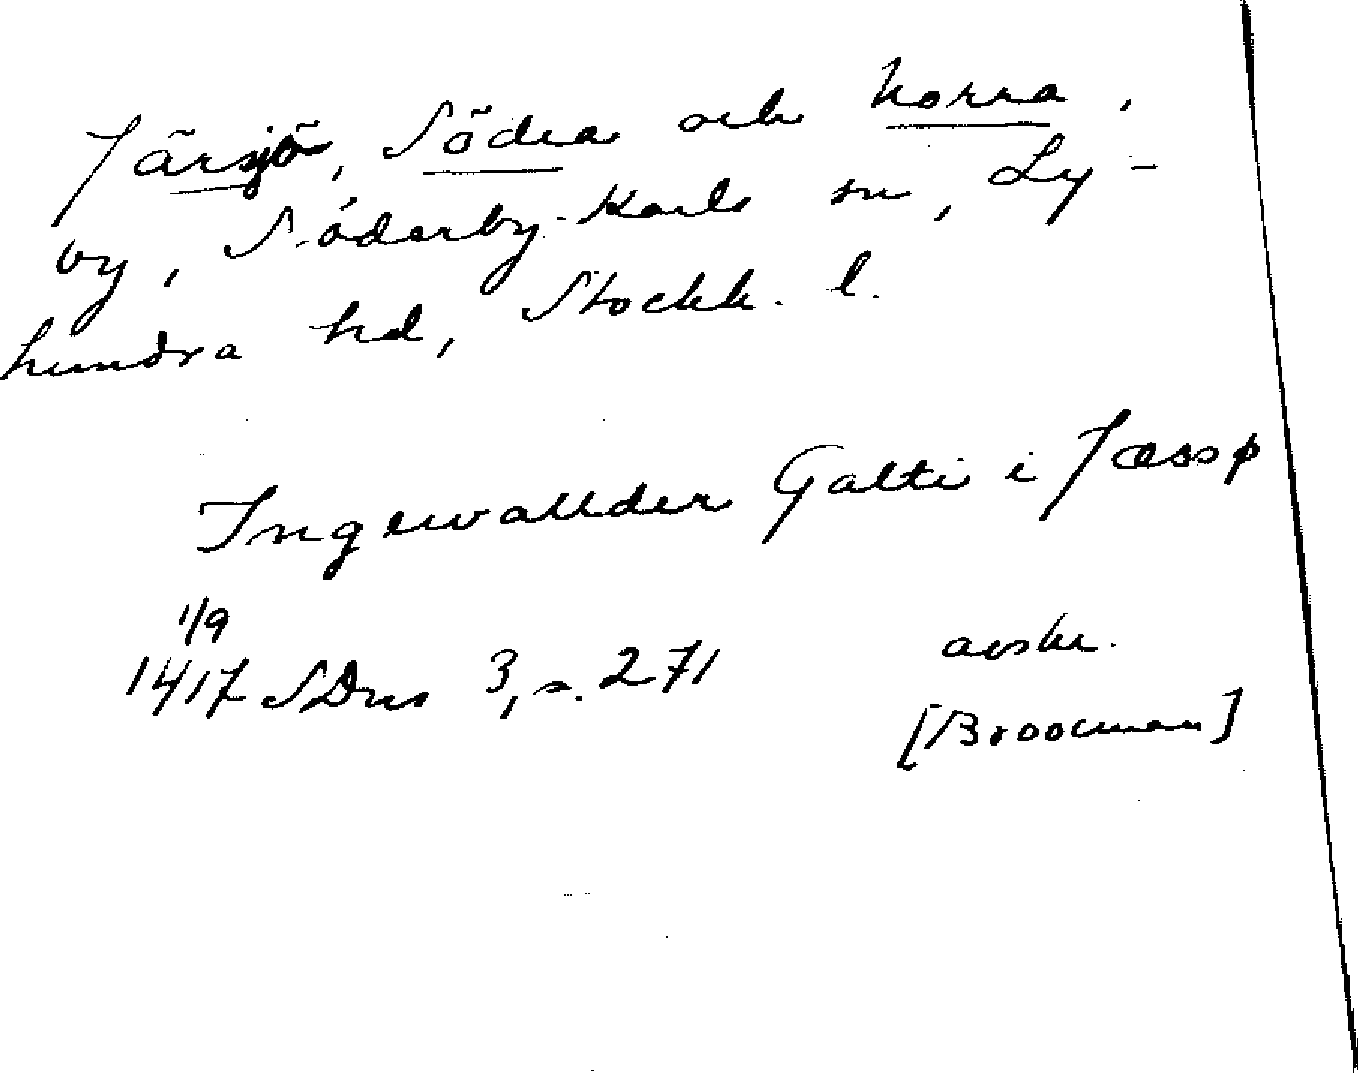 Järsjö, Södra och Norra,
by, Söderby-Karls sn, Ly-
hundra hd, Stockh. l.
Ingewallder Galti i Jæssø
1/9
1417 SDns 3, s. 271
avskr.
[Broocman]